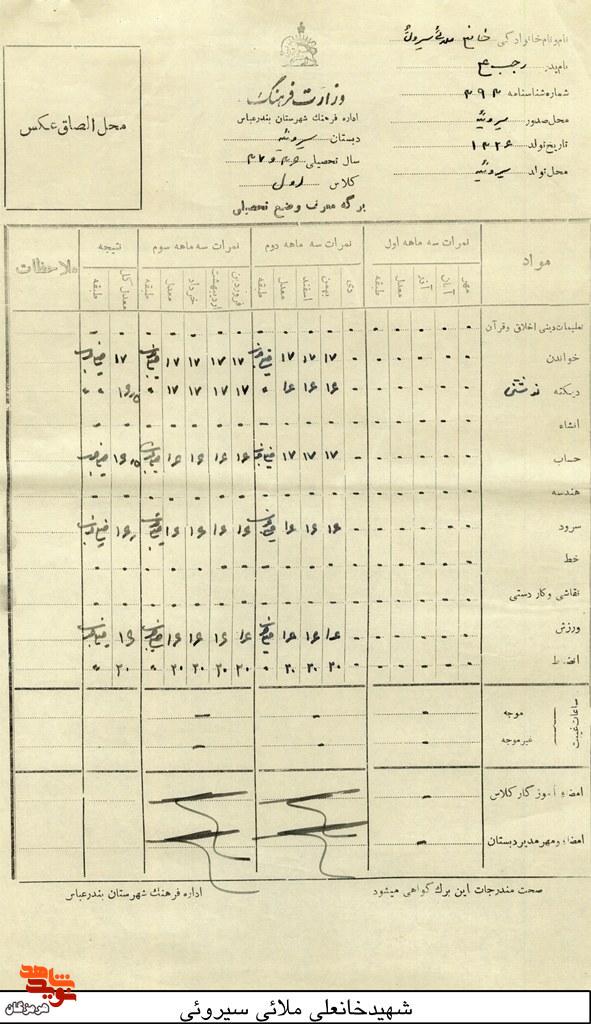 نام و نام خانوادگی خانعلی ملائی سیروئی
نام پدر رجب علی
شماره شناسنامه ۳۹۳
محل صدور سیروئیه
تاریخ تولد ۱۳۲۶
محل تولد سیروئیه
وزارت فرهنگ
اداره فرهنگ شهرستان بندرعباس
دبستان سیروئیه
سال تحصیلی ۳۶ و ۳۷
کلاس اول
برگه معرف وضع تحصیلی
محل الصاق عکس
مواد نمرات سه ماهه اول نمرات سه ماهه دوم نمرات سه ماهه سوم نتیجه ملاحظات
مهر آبان آذر معدل طبقه دی بهمن اسفند معدل طبقه فروردین اردیبهشت خرداد معدل طبقه معدل کل طبقه
تعلیمات دینی اخلاق و قرآن
خواندن ۱۷ ۱۷ ۱۷ ۱۷ ۱۷ ۱۷ ۱۷ ۱۷
دیکته ۱۶ ۱۶ ۱۶ ۱۷ ۱۷ ۱۷ ۱۷ ۱۶٫۵
انشاء
حساب ۱۷ ۱۷ ۱۷ ۱۶ ۱۶ ۱۶ ۱۶ ۱۶٫۵
هندسه
سرود ۱۶ ۱۶ ۱۶ ۱۶ ۱۶ ۱۶ ۱۶ ۱۶
خط
نقاشی و کار دستی
ورزش ۱۶ ۱۶ ۱۶ ۱۶ ۱۶ ۱۶ ۱۶ ۱۶
انضباط ۲۰ ۲۰ ۲۰ ۲۰ ۲۰ ۲۰ ۲۰ ۲۰
ساعات غیبت
موجه
غیرموجه
امضاء آموزگار کلاس
امضاء و مهر مدیر دبستان
صحت مندرجات این برگ گواهی میشود اداره فرهنگ شهرستان بندرعباس
نوید شاهد
هرمزگان
شهیدخانعلی ملائی سیروئی